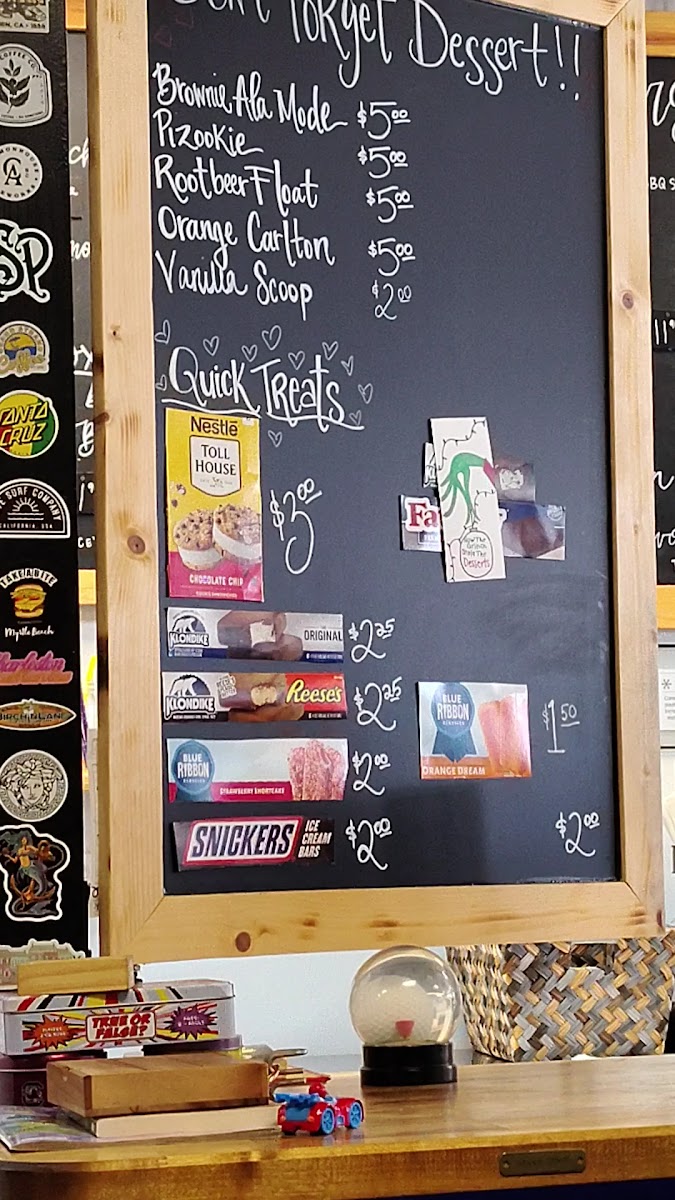 Don't Forget Dessert!!
Brownie Ala Mode $5.00
Pizookie $5.00
Rootbeer Float $5.00
Orange Carlton $5.00
Vanilla Scoop $2.00
Quick Treats
Nestlé
TOLL
HOUSE
CHOCOLATE CHIP
$3.00
Fa
How The
Grinch
Stole The
Desserts
KLONDIKE
ORIGINAL
$2.25
KLONDIKE
Reese's
$2.25
BLUE
RIBBON
STRAWBERRY SHORTCAKE
$2.00
BLUE
RIBBON
ORANGE DREAM
$1.50
SNICKERS
ICE
CREAM
BARS
$2.00
$2.00
COFFEE CO
CA
SP
SANTA
CRUZ
SURF COMPANY
CALIFORNIA, USA
TAKE A BITE
Myrtle Beach
Charleston
TRUE OR
FALSE?